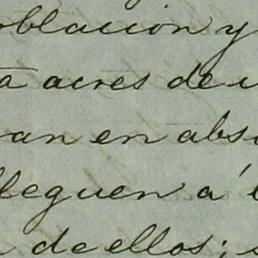 oblacion y
a acres de
van en abs
lleguen á
de ellos;